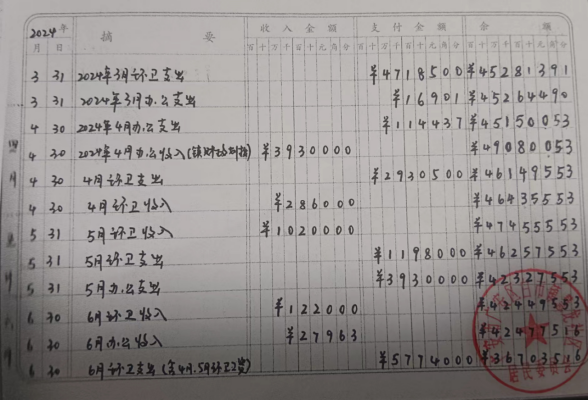 2024年 摘 要 收 入 金 额 支 付 金 额 余 额
月 日 百十万千百十元角分 百十万千百十元角分 百十万千百十元角分
3 31 2024年3月环卫支出 ¥4718500 ¥45281391
3 31 2024年3月办公支出 ¥16901 ¥45264490
4 30 2024年4月办公支出 ¥114437 ¥45150053
4 30 2024年4月办公收入(镇财政划拨) ¥3930000 ¥49080053
4 30 4月环卫支出 ¥2930500 ¥46149553
4 30 4月环卫收入 ¥286000 ¥46435553
5 31 5月环卫收入 ¥1020000 ¥47455553
5 31 5月环卫支出 ¥1198000 ¥46257553
5 31 5月办公支出 ¥3930000 ¥42327553
6 30 6月环卫收入 ¥122000 ¥42449553
6 30 6月办公收入 ¥27963 ¥42477516
6 30 6月环卫支出(含4月.5月环卫工资) ¥5774000 ¥36703516
居民委员会